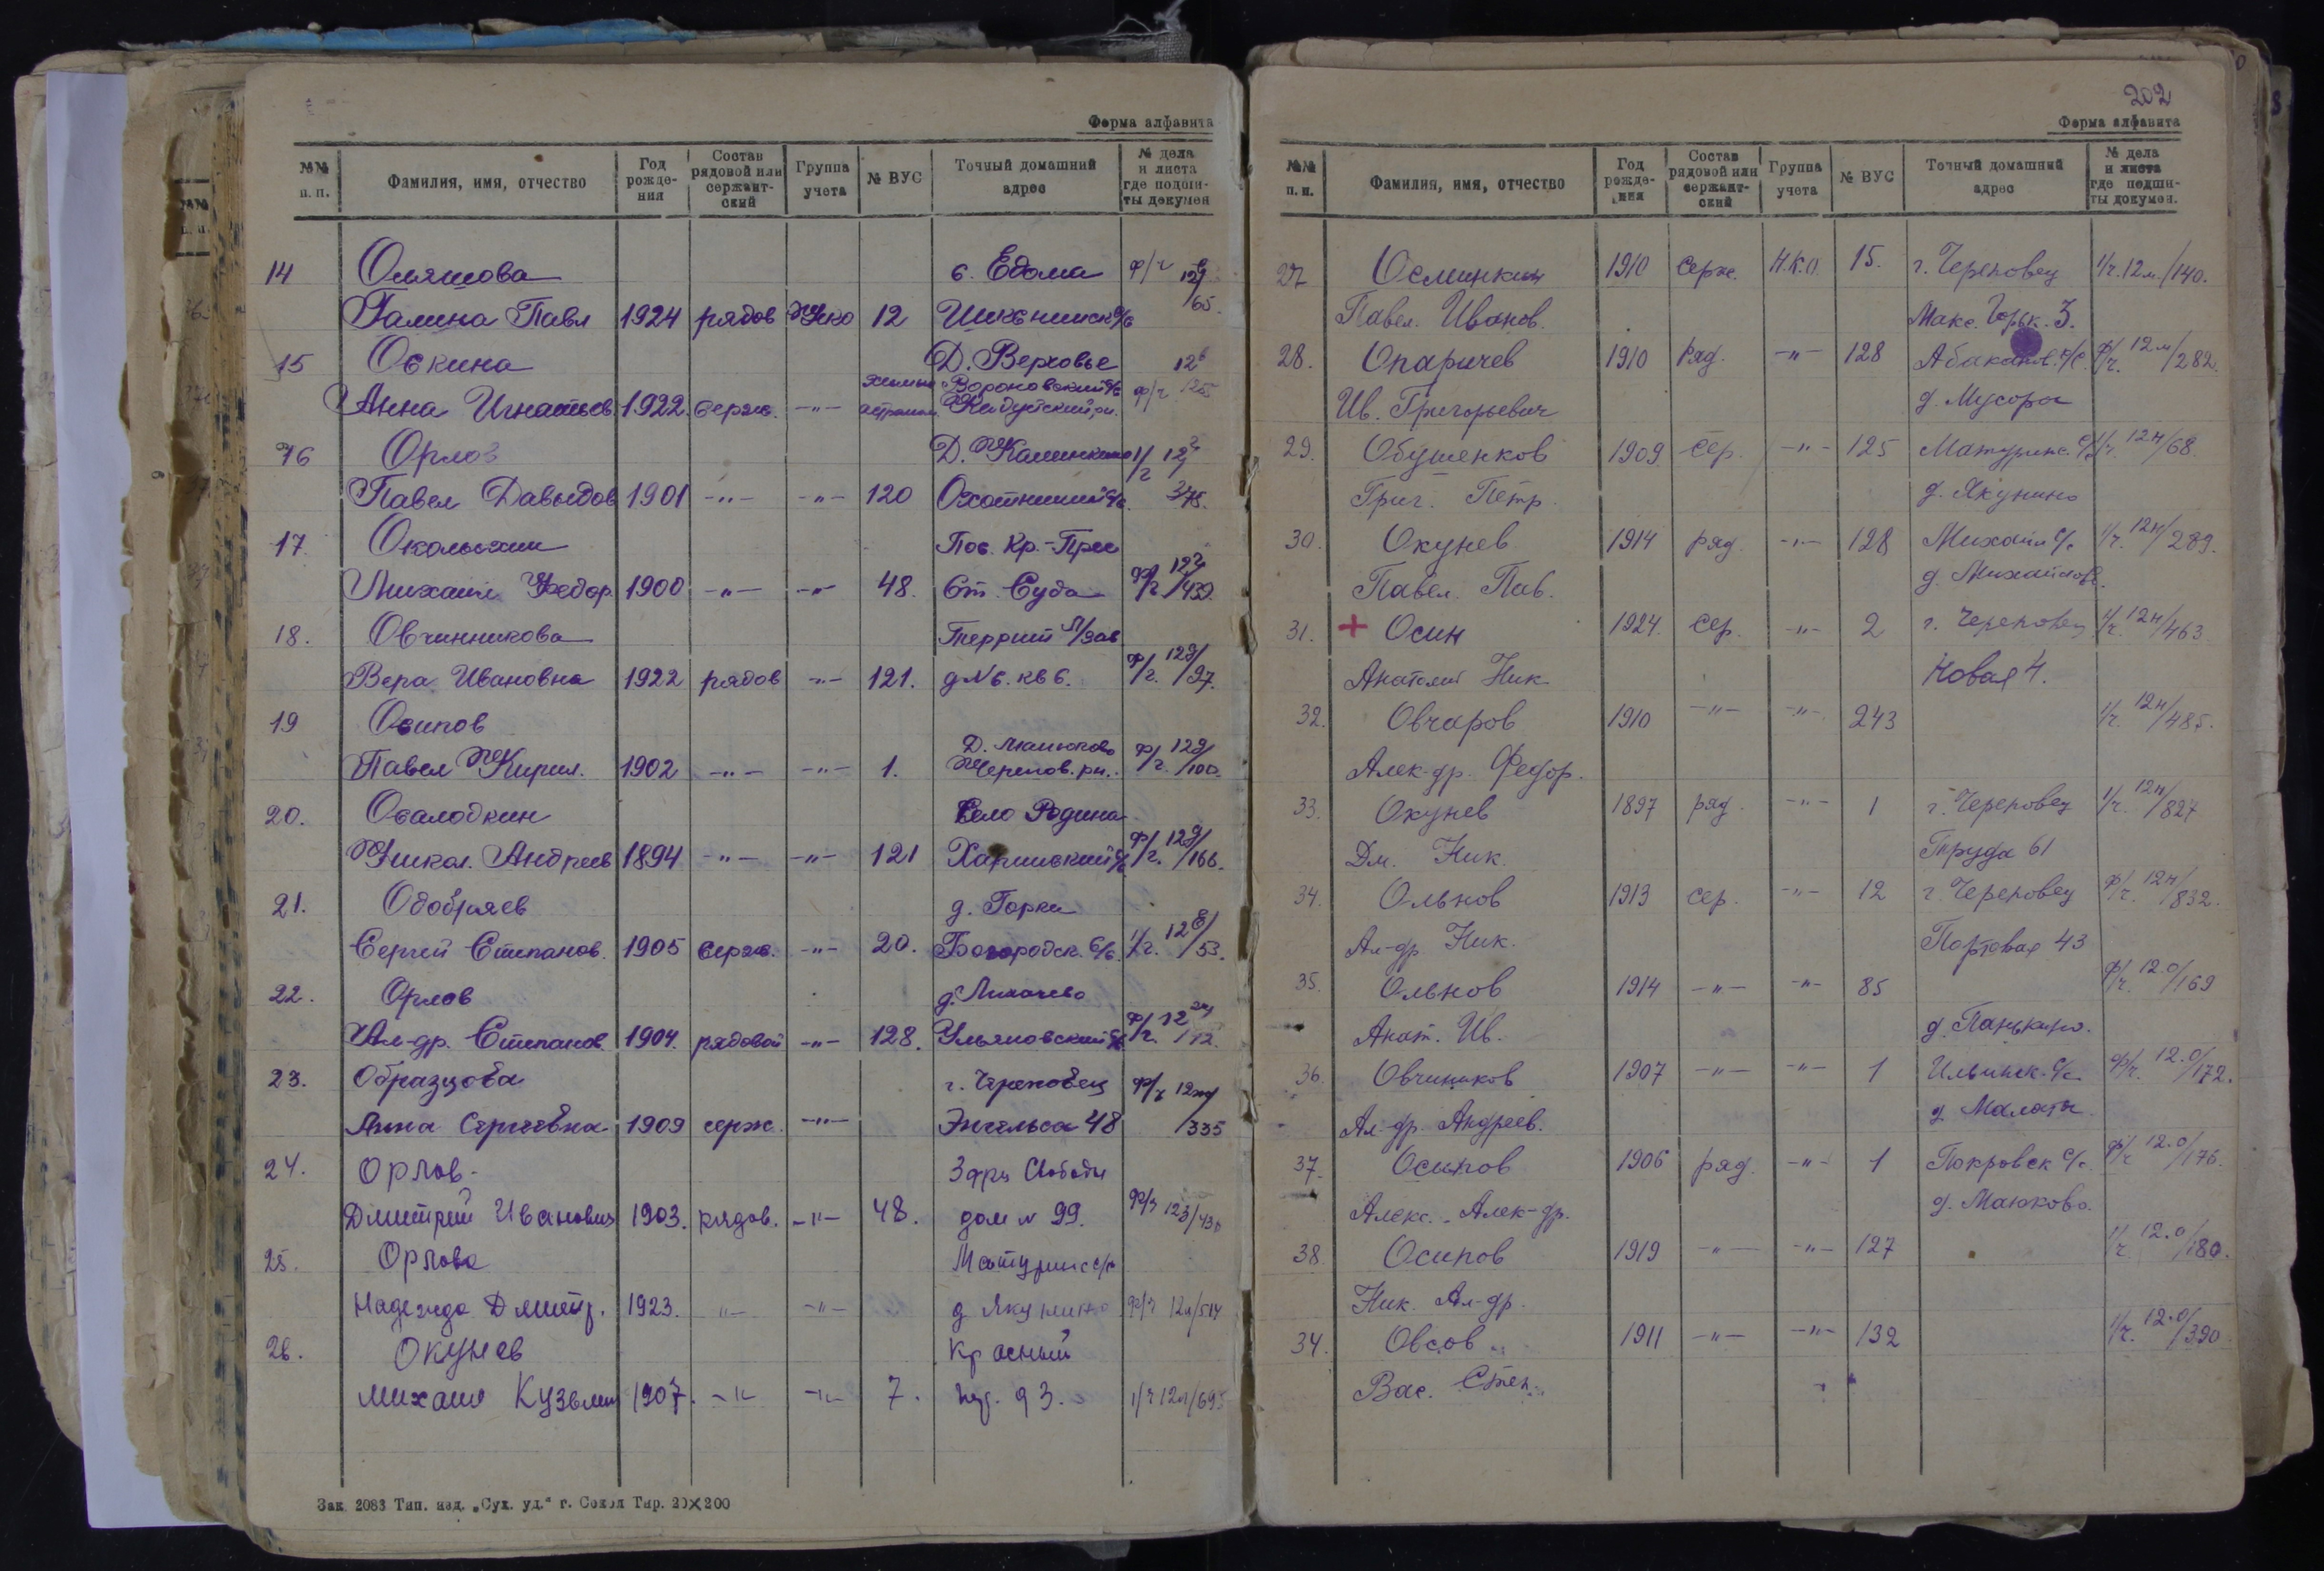 Форма алфавита
№№ п. п. Фамилия, имя, отчество Год рожде- ния Состав рядовой или сержант- ский Группа учета № ВУС Точный домашний адрес № дела и листа где подши- ты докумен
14 с. Едома ф/г
Галина Павл 1924 рядов НКО 12 65.
15 Оскина Д. Верховье 12
Анна Игнатьев 1922. серж. -"- Вороновский с/с Кадуйский рн. ф/г 125
16 Орлов Д. Калинкино 1/г
Павел Давыдов 1901 -"- -"- 120 375.
17 Пос. Кр.-Прес
Михаил Федор. 1900 -"- -"- 48. Ст. Суда ф/г. 439.
18. Овчинникова Террит Л/зав
Вера Ивановна 1922 рядов -"- 121. д № 6. кв 6. ф/г. 12д/97.
19 Осипов Д.
Павел Кирил. 1902 -"- -"- 1. Черепов. рн. ф/г. 12д/100.
20. Село Родина
Никол. Андреев 1894 -"- -"- 121 ф/г. 12д/166.
21. Одобряев д. Горка
Сергей Степанов. 1905 серж. -"- 20. Богородск. С/с. 1/г. 12е/53.
22. Орлов д. Лихачево
Ал-др. Степанов. 1904. рядовой -"- 128. Ульяновский с/с ф/г. 12
23. Образцова г. Череповец ф/г 12ж/
Анна Сергеевна 1909 серж. -"- Энгельса 48 /335
24. Орлов- Свободы
Дмитрий Иванович 1903. рядов. -"- 48. дом № 99. ф/г 12з/430
25. Орлова Матуринс с/с
Надежда Дмитр. 1923. -"- -"- д Якунино ф/г 12л/514
26. Окунев Красный
Михаил Кузьмич 1907. -"- -"- 7. 93. 1/г 12л/695
Зак 2083 Тип. изд. „Сух. уд.“ г. Сокол Тир. 20×200
202
Форма алфавита
№№ п. п. Фамилия, имя, отчество Год рожде- ния Состав рядовой или сержант- ский Группа учета № ВУС Точный домашний адрес № дела и листа где подши- ты докумен.
27 Осминкин 1910 серж. Н.К.О. 15. г. Череповец 1/г. 12м./140.
Павел. Иванов. Макс. Горьк. 3.
28. Опаричев 1910 ряд. -"- 128 Абаканов. с/с. ф/г. 12м/282.
Ив. Григорьевич д. Мусора
29. Обушенков 1909 сер. -"- 125 Матуринс. с/с 1/г. 12н/68
Григ. Петр. д. Якунино
30. Окунев 1914 ряд. -"- 128 с/с 1/г. 12н/289.
Павел. Пав. д.
31. + Осин 1924. сер. -"- 2 г. Череповец 1/г. 12н/463
Анатолий Ник. Новая 4.
32. Овчаров 1910 -"- -"- 243 1/г. 12н/485.
Алек-др. Федор.
33. Окунев 1897 ряд. -"- 1 г. Череповец 1/г. 12н/827
Дм. Ник. Труда 61
34. Ольнов 1913 сер. -"- 12 г. Череповец ф/г. 12н/832.
Ал-др Ник. Портовая 43
35. Ольнов 1914 -"- -"- 85 ф/г. 12.о/169
Анат. Ив. д. Панькино.
36. Овчинников 1907 -"- -"- 1 Ильинск. с/с. ф/г. 12.о/172.
Ал-др. Андреев. д. Малата
37. Осипов 1906 ряд. -"- 1 Покровск с/с. ф/г. 12.о/176.
Алекс. Алек-др. д. Маюково.
38. Осипов 1919 -"- -"- 127 1/г. 12.о/180.
Ник. Ал-др.
34. Овсов 1911 -"- -"- 132 1/г. 12.о/390
Вас. Степ.